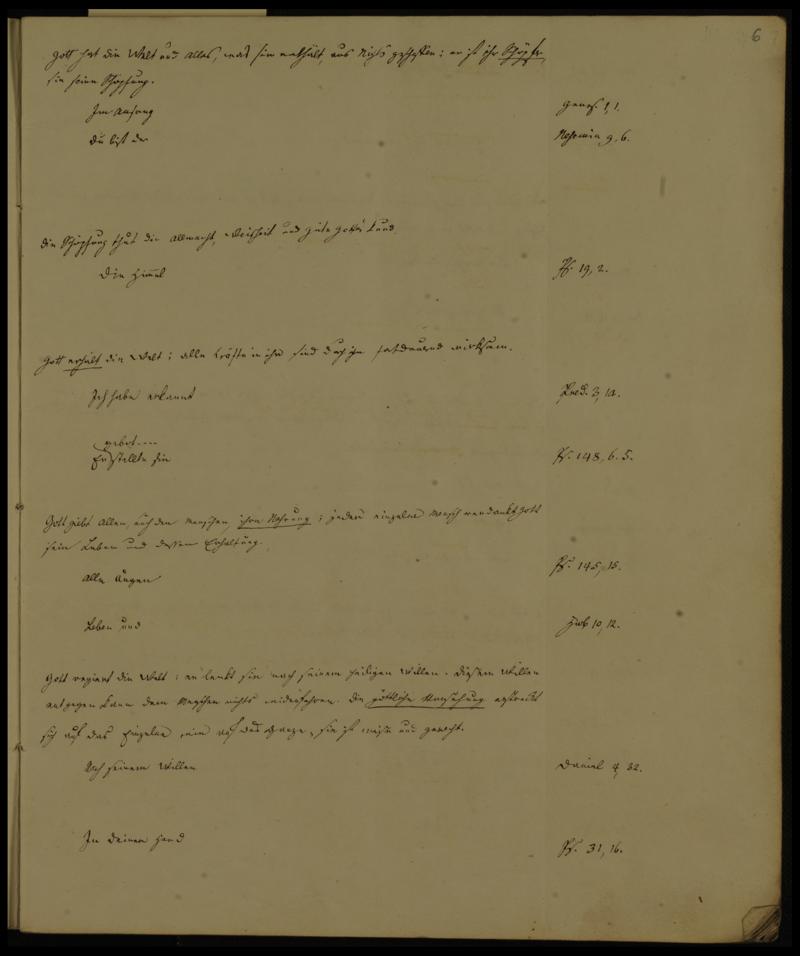 6
Gott hat die Welt und Alles, was sie enthält, aus Nichts geschaffen: er ist ihr Schöpfer,
sie seine Schöpfung.
Im Anfang Genes. 1, 1.
Du bist der Nehemia 9, 6.
Die Schöpfung thut die Allmacht, Weisheit und Güte Gottes kund.
Die Himmel Ps. 19, 2.
Gott erhält die Welt; alle Kräfte in ihr sind durch ihn fortdauernd wirksam.
Ich habe erkannt Pred. 3, 14.
gebot....
Er stellte sie Ps. 148, 6. 5.
Gott giebt Allen, auch den Menschen, ihre Nahrung; jeder einzelne Mensch verdankt Gott
sein Leben und dessen Erhaltung.
Alle Augen Ps. 145, 15.
Leben und Hiob 10, 12.
Gott regiert die Welt: er lenkt sie nach seinem heiligen Willen. Diesem Willen
entgegen kann dem Menschen nichts widerfahren. Die göttliche Vorsehung erstreckt
sich auf das Einzelne wie auf das Ganze, sie ist weise und gerecht.
Nach seinem Willen Daniel 4, 32.
In deiner Hand Ps. 31, 16.